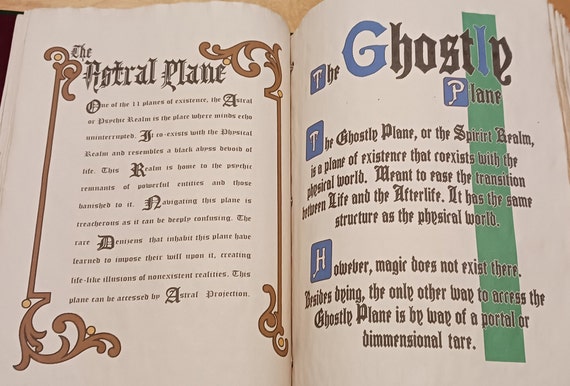 The
Astral Plane
One of the 11 planes of existence, the Astral
or Psychic Realm is the place where minds echo
uninterrupted. It co-exists with the Physical
Realm and resembles a black abyss devoid of
life. This Realm is home to the psychic
remnants of powerful entities and those
banished to it. Navigating this plane is
treacherous as it can be deeply confusing. The
rare Denizens that inhabit this plane have
learned to impose their will upon it, creating
life-like illusions of nonexistent realities. This
plane can be accessed by Astral Projection.
The Ghostly
Plane
The Ghostly Plane, or the Spirirt Realm,
is a plane of existence that coexists with the
physical world. Meant to ease the transition
between Life and the Afterlife. It has the same
structure as the physical world.
However, magic does not exist there.
Besides dying, the only other way to access the
Ghostly Plane is by way of a portal or
dimmensional tare.